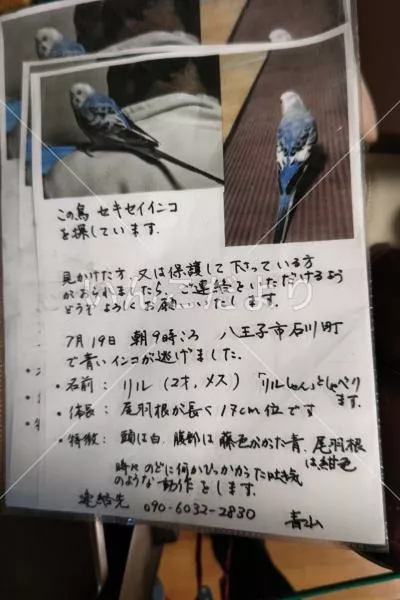 この鳥 セキセイインコ
を探しています.
見かけた方、又は保護して下さっている方
がおられましたら、ご連絡をいただけるよう
どうぞよろしくお願いいたします.
7月19日 朝9時ころ 八王子市石川町
で青いインコが逃げました.
・名前: リル (2才, メス) 「リルしゃん」としゃべり
ます.
・体長: 尾羽根が長く 17cm位です
・特徴: 頭は白, 腹部は藤色がかった青, 尾羽根
は紺色
時々のどに何かひっかかった
のような動作をします.
連絡先 090-6032-2830
青山